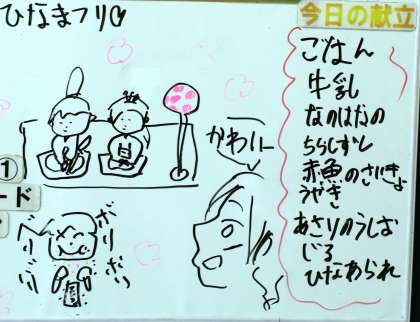 ひなまつり
今日の献立
ごはん
牛乳
なのはなの
ちらしずし
赤魚のさいきょ
うやき
あさりのうしお
じる
ひなあられ
かわいー
①
ード
ボリ
ボリ